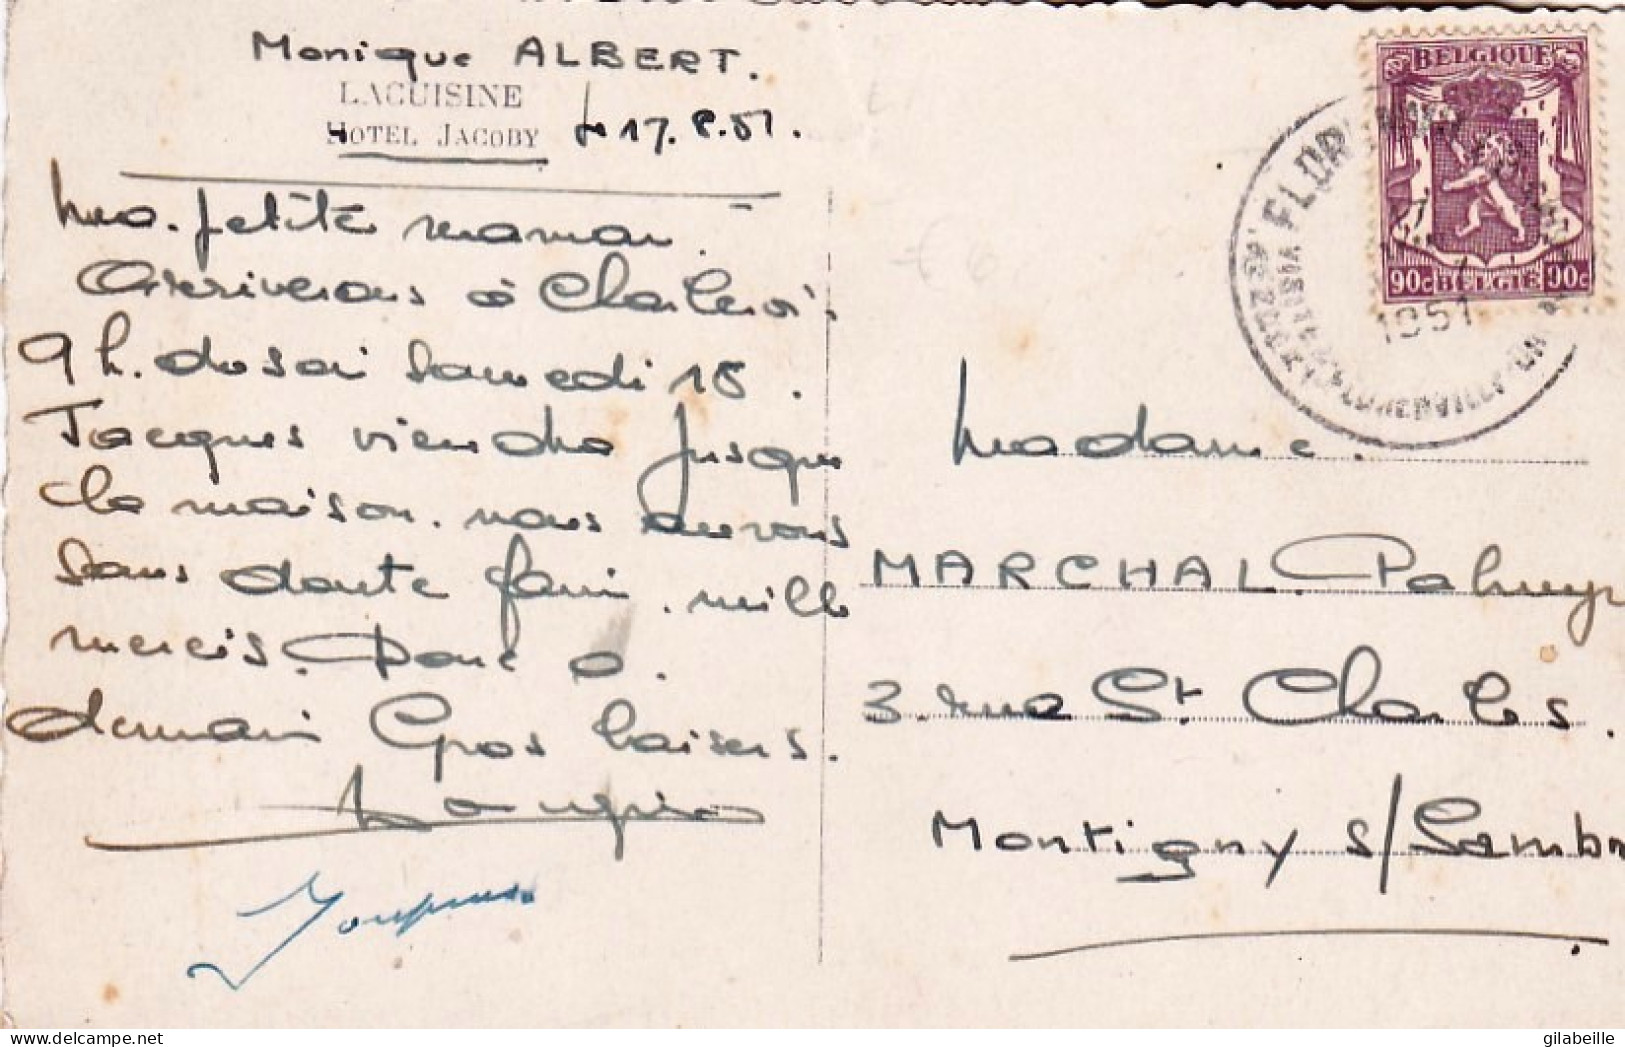 Monique ALBERT.
LACUISINE
HOTEL JACOBY le 17.8.51.
Ma petite maman.
Arriverons à Charleroi
9 h. du soir samedi 18.
Jacques viendra jusque
la maison. nous aurons
sans doute faim. mille
mercis. Donc à
demain Gros baisers.
BELGIQUE
90c BELGIE 90c
1951
Madame.
MARCHAL
3. rue St Charles.
Montigny s/ Sambr
gilabeille